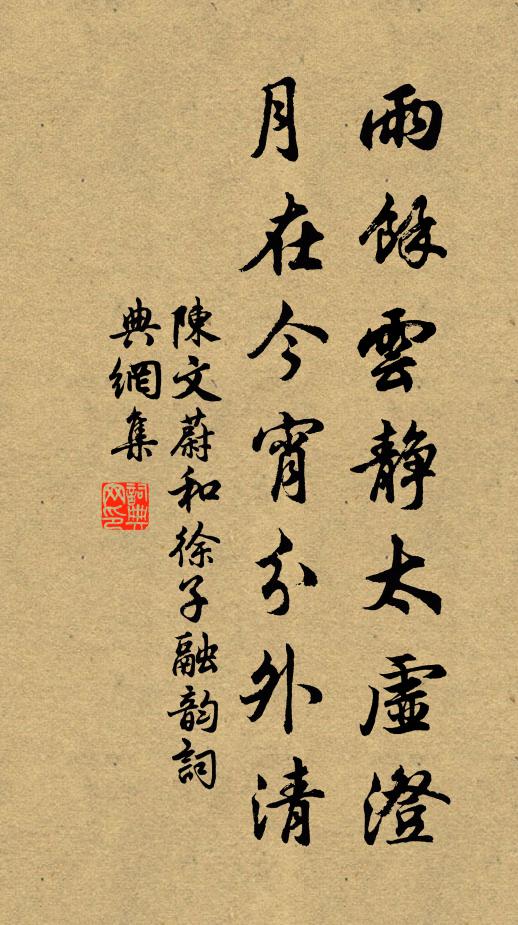 雨餘雲靜太虛澄
月在今宵分外清
陳文蔚和徐子融韵詞
典網集
詞典
网印